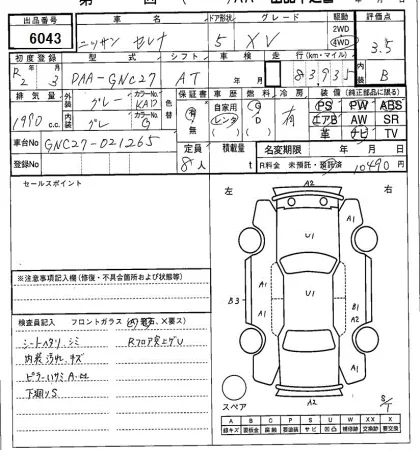 出品番号 車名 ドア形状 グレード 駆動 評価点
6043 ニッサン セレナ 5 XV 2WD 4WD 3.5
初度登録 型式 シフト 車検 走行(km・マイル) 内装
R2年 3月 DAA-GNC27 AT 83,935 B
排気量 外装 グレー カラーNo. KAD 色替 保証書 車歴 燃料 冷房 装備(純正部品に限る)
1990 c.c. 内装 グレー カラーNo. G 有 無 自家用 レンタ G D 有
PS PW ABS
エアB AW SR
革 ナビ TV
車台No GNC27-021265 定員 積載量 名変期限 年 月 日
登録No 8人 t R料金 未預託・預託済 10490円
セールスポイント
左 右
※注意事項記入欄(修復・不具合箇所および状態等)
検査員記入 フロントガラス
シートヘタリ シミ Rフロア突上ゲU
内装汚れ キズ
下廻りS
A2
A1
U1
A1
B3
A1
A1
U1
A1
A2
スペア
A B C P S U W X XX
線キズ 要板金 腐触 要塗装 サビ 凹凸 補修跡 交換跡 要交換